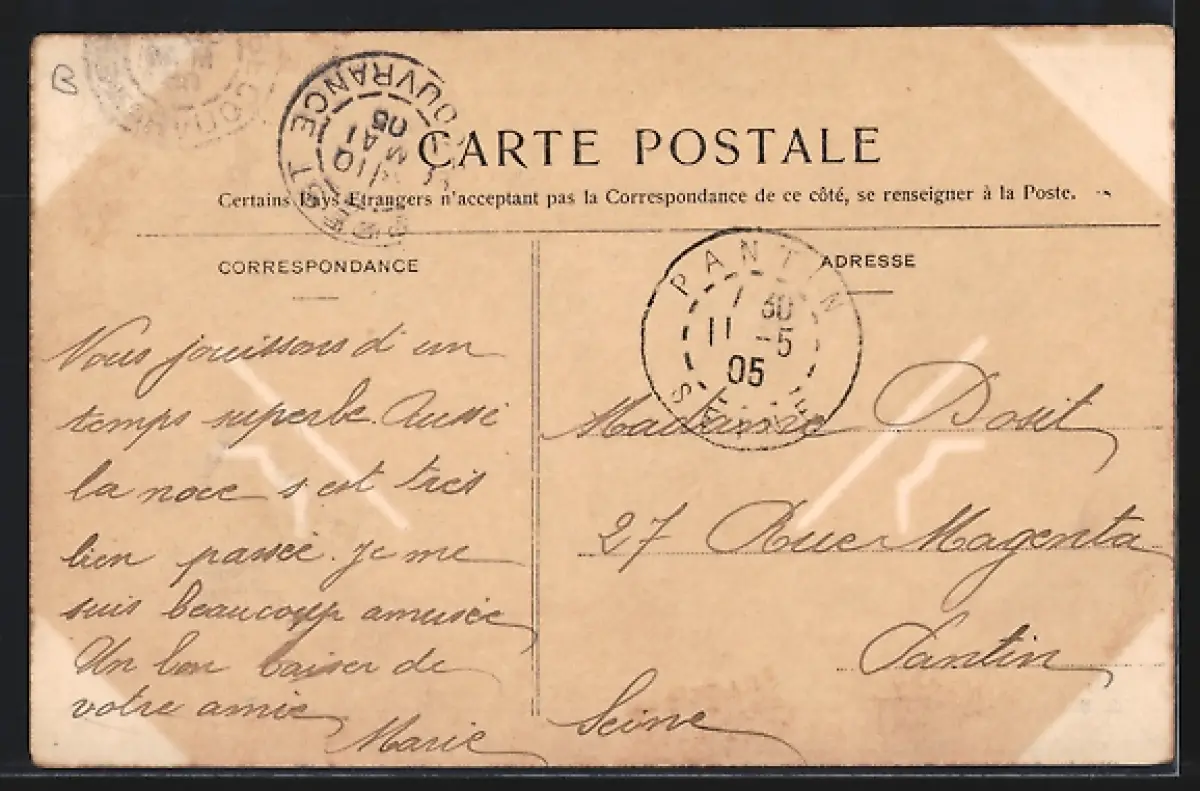 B
RECOUVRANCE BREST
10
MAI
05
CARTE POSTALE
Certains Pays Etrangers n'acceptant pas la Correspondance de ce côté, se renseigner à la Poste.
CORRESPONDANCE
Nous jouissons d'un
temps superbe. Aussi
la noce s'est très
bien passée. Je me
suis beaucoup amusée
Un bon baiser de
votre amie
Marie
PANTIN
7 30
11 -5
05
SEINE
ADRESSE
Madame Dosit
27 Rue Magenta
Pantin
Seine